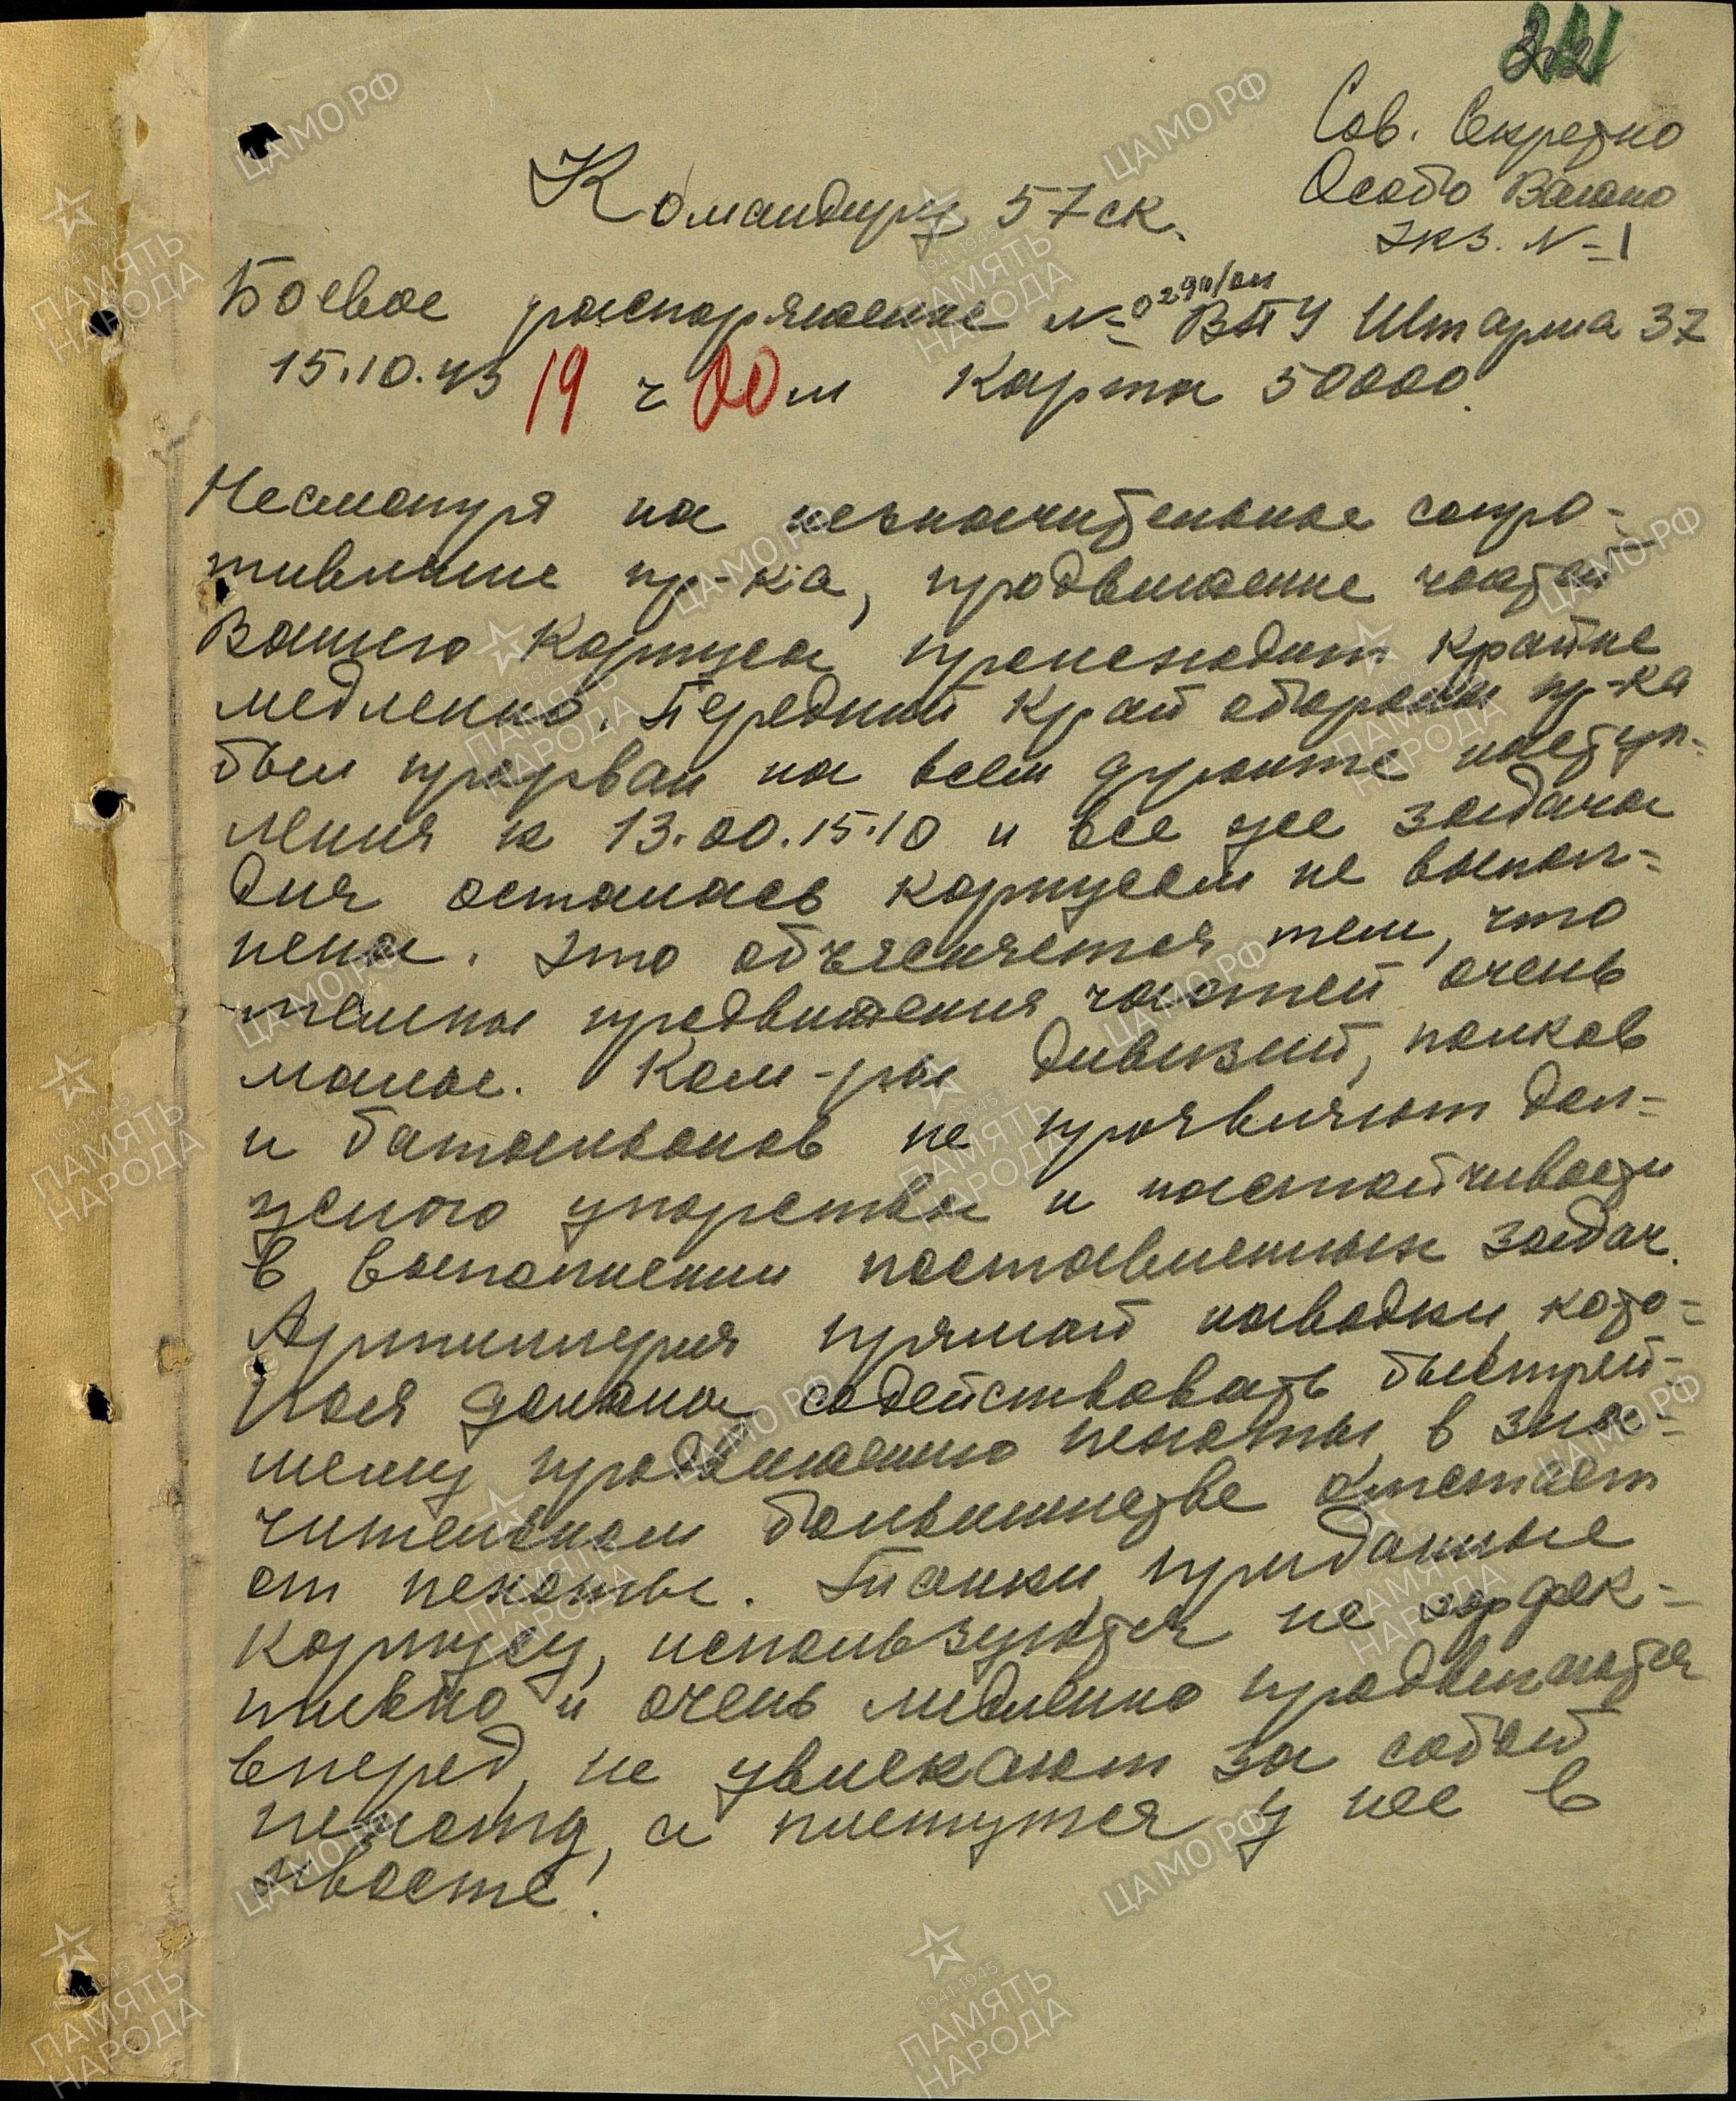 Сов. Секретно
Особо Важно
Экз. № 1
Командиру 57 ск.
Боевое распоряжение № 0290/оп ВПУ Штарма 37
15.10.43 19 ч 00 м Карта 50000.
Несмотря на незначительное сопро-
тивление пр-ка, продвижение частей
Вашего Корпуса происходит крайне
медленно. Передний край обороны пр-ка
был прорван на всем фронте наступ-
ления к 13.00.15.10 и все же задача
дня осталась корпусом не выпол-
нена. Это объясняется тем, что
темпы продвижения частей очень
малые. Ком-ры дивизий, полков
и батальонов не проявляют дол-
жного упорства и настойчивости
в выполнении поставленных задач.
Артиллерия прямой наводки, кото-
рая должна содействовать быстрей-
шему продвижению пехоты в зна-
чительном большинстве отстает
от пехоты. Танки, приданные
корпусу, используются не эффек-
тивно и очень медленно продвигаются
вперед, не увлекают за собой
пехоту, а плетутся у нее в
хвосте!
ЦАМО РФ
ПАМЯТЬ
НАРОДА
1941-1945